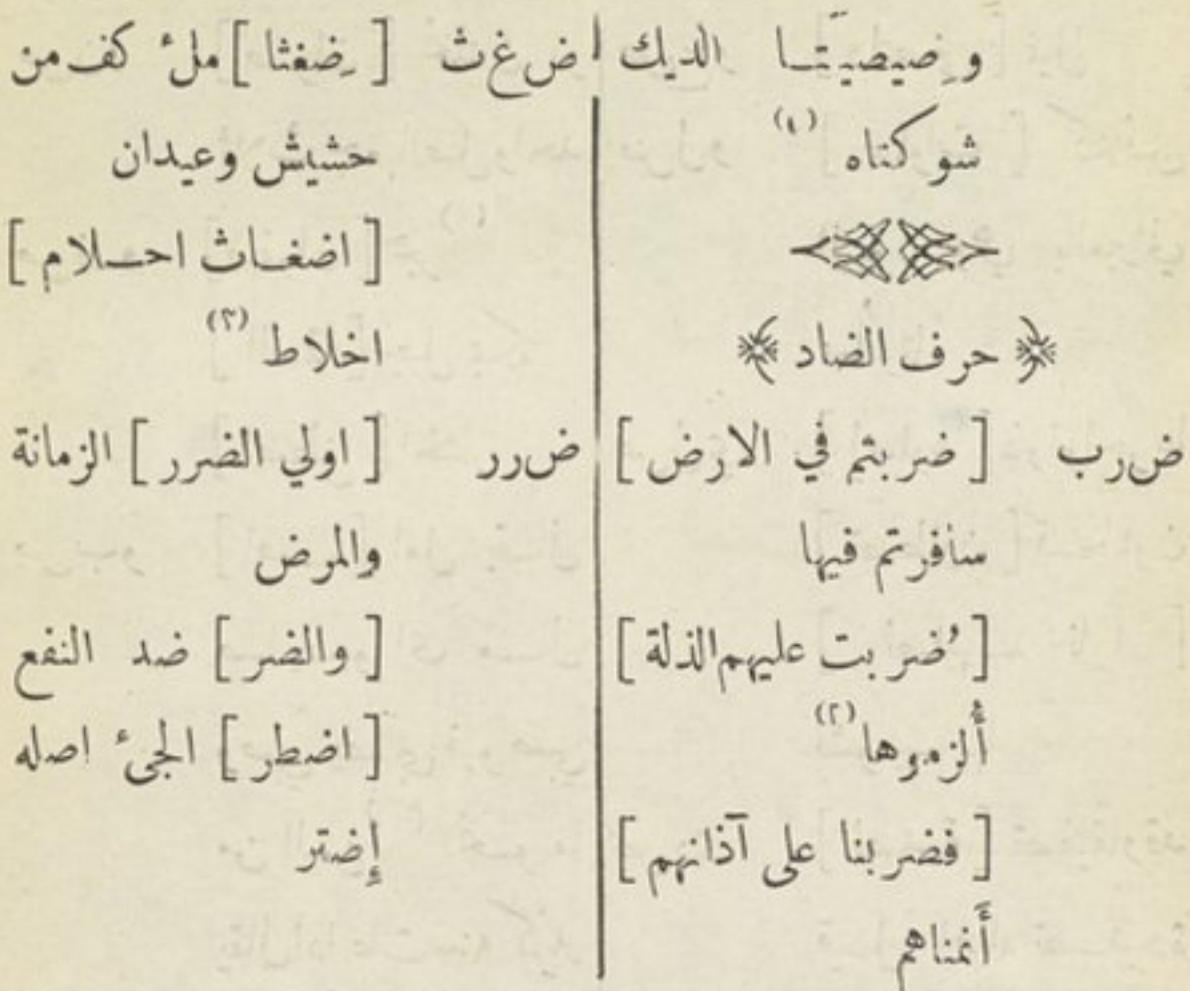 وِصيصيَتَّا الديك
شوكتاه (١)
﴿ حرف الضاد ﴾
ض رب [ضربتم في الارض]
سافرتم فيها
[ضُربت عليهم الذلة]
أُلزموها (٢)
[فضربنا على آذانهم]
أَنمناهم
ض غ ث [ضِغثا] ملء كف من
حشيش وعيدان
[اضغاث احلام]
اخلاط (٣)
ض رر [اولي الضرر] الزمانة
والمرض
[والضر] ضد النفع
[اضطر] الجىء اصله
إِضتر